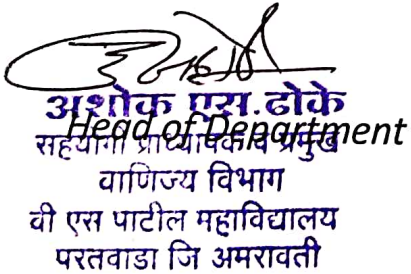 अशोक एस. ढोके
Head of Department
सहयोगी प्राध्यापक व प्रमुख
वाणिज्य विभाग
वी एस पाटील महाविद्यालय
परतवाडा जि अमरावती